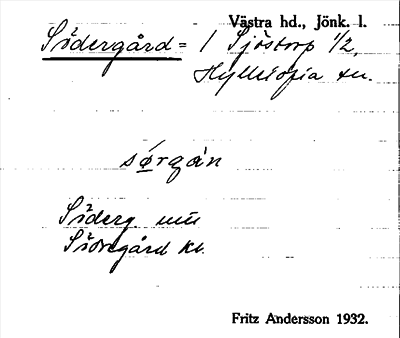 Västra hd., Jönk. l.
Södergård = / Sjöstorp 1/2,
Hylletofta sn.
sørgàn
Söderg. mu
Södregård kv.
Fritz Andersson 1932.